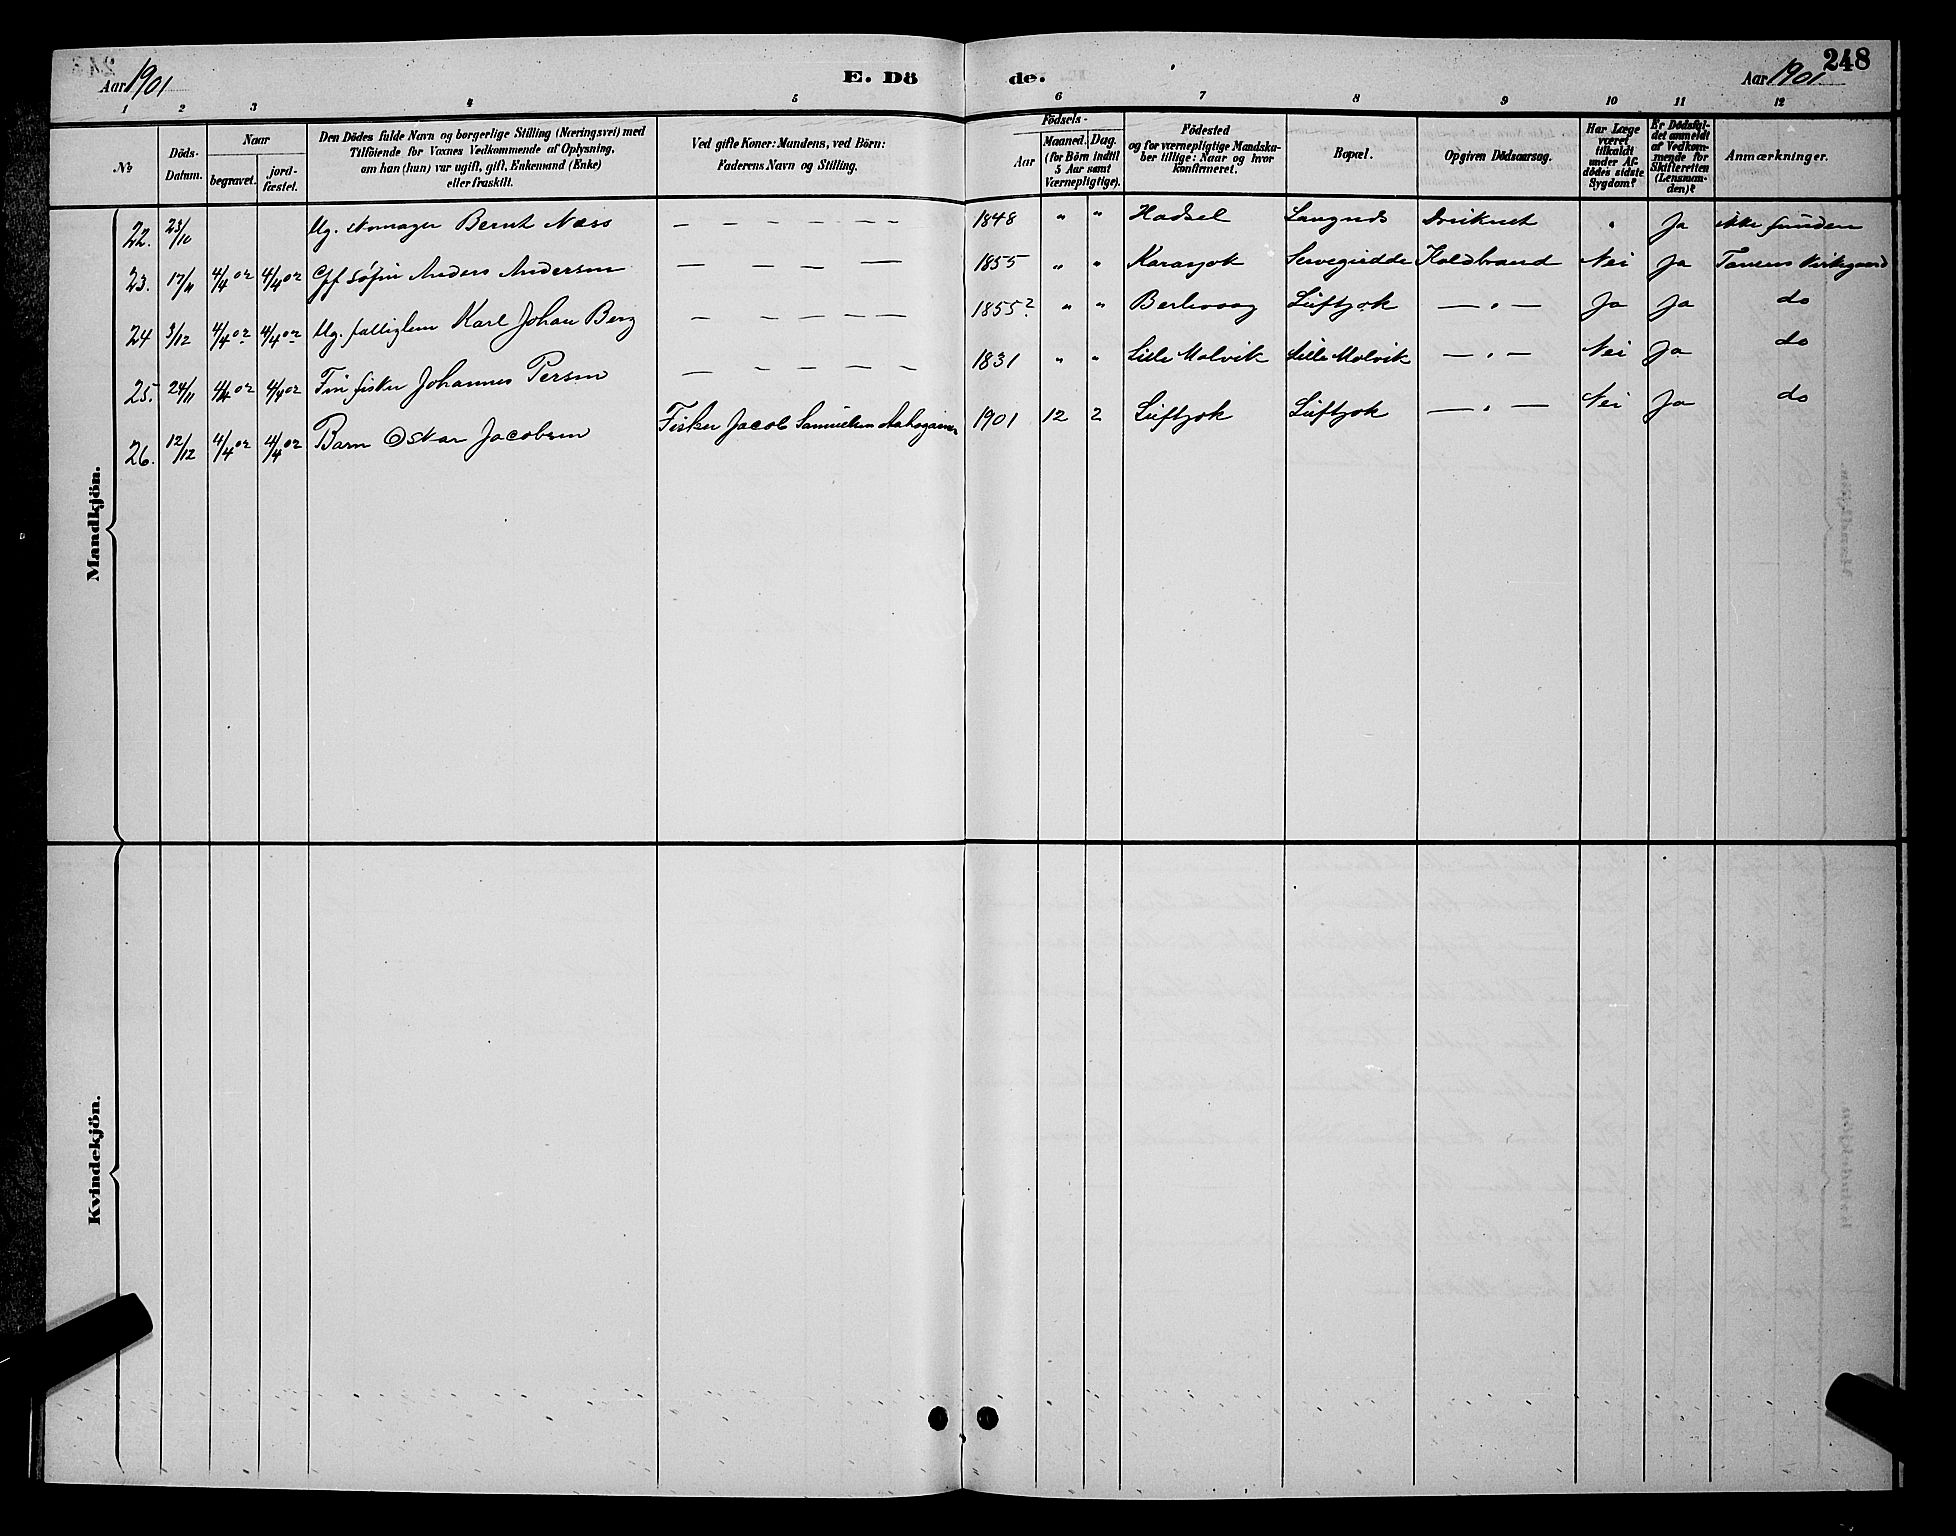 Aar 1901 E. Dö de. Aar 1901 248
1 2 3 4 5 6 7 8 9 10 11 12
No
Döds-Datum.
Naar
begravet.
jord-fæstet.
Den Dödes fulde Navn og borgerlige Stilling (Næringsvei) med
Tilföiende for Voxnes Vedkommende af Oplysning,
om han (hun) var ugift, gift, Enkemand (Enke)
eller fraskilt.
Ved gifte Koner: Mandens, ved Börn:
Faderens Navn og Stilling.
Födsels-
Aar
Maaned. Dag.
(for Börn indtil
5 Aar samt
Værnepligtige).
Födested
og for værnepligtige Mandska-
ber tillige: Naar og hvor
konfirmeret.
Bopæl.
Opgiven Dödsaarsag.
Har Læge
været
tilkaldt
under Af-
dödes sidste
Sygdom?
Er Dödsfal-
det anmeldt
af Vedkom-
mende for
Skifteretten
(Lensman-
den)?
Anmærkninger.
Mandkjön.
22. 23/10 Ug. Bernt Næss — — — — — — 1848 " " Hadsel Druknet " Ja ikke funden
23. 17/11 4/4 02 4/4 02 Anders Andersen — — — — 1855 " " Karasjok Koldbrand Nei Ja Tanens Kirkegaard
24 3/12 4/4 02 4/4 02 Ug. fattiglem Karl Johan Berg — — — — — 1855? " " Berlevaag Luftjok — " — Ja Ja do
25. 24/11 4/4 02 4/4 02 Fin fisker Johannes Persen — — — — — 1831 " " Lille Molvik Lille Molvik — " — Nei Ja do
26. 12/12 4/4 02 4/4 02 Barn Oskar Jacobsen Fisker Jacob Samuelsen 1901 12 2 Luftjok Luftjok — " — Nei Ja do
Kvindekjön.